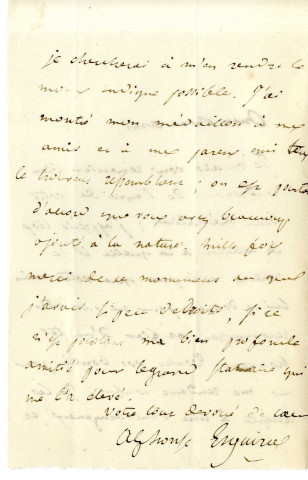 je chercherai à m'en rendre le
moins indigne possible. J'ai
montré mon médaillon à mes
amis et à mes parens, qui tous
le trouvent ressemblant ; on est partout
d'accord que vous avez beaucoup
ajouté à la nature. mille fois
merci de ce monument au quel
j'avais si peu de droits, si ce
n'est pourtant ma bien profonde
amitié pour le grand statuaire qui
me l'a élevé.
Votre tout dévoué de cœur
Alphonse Esquiros